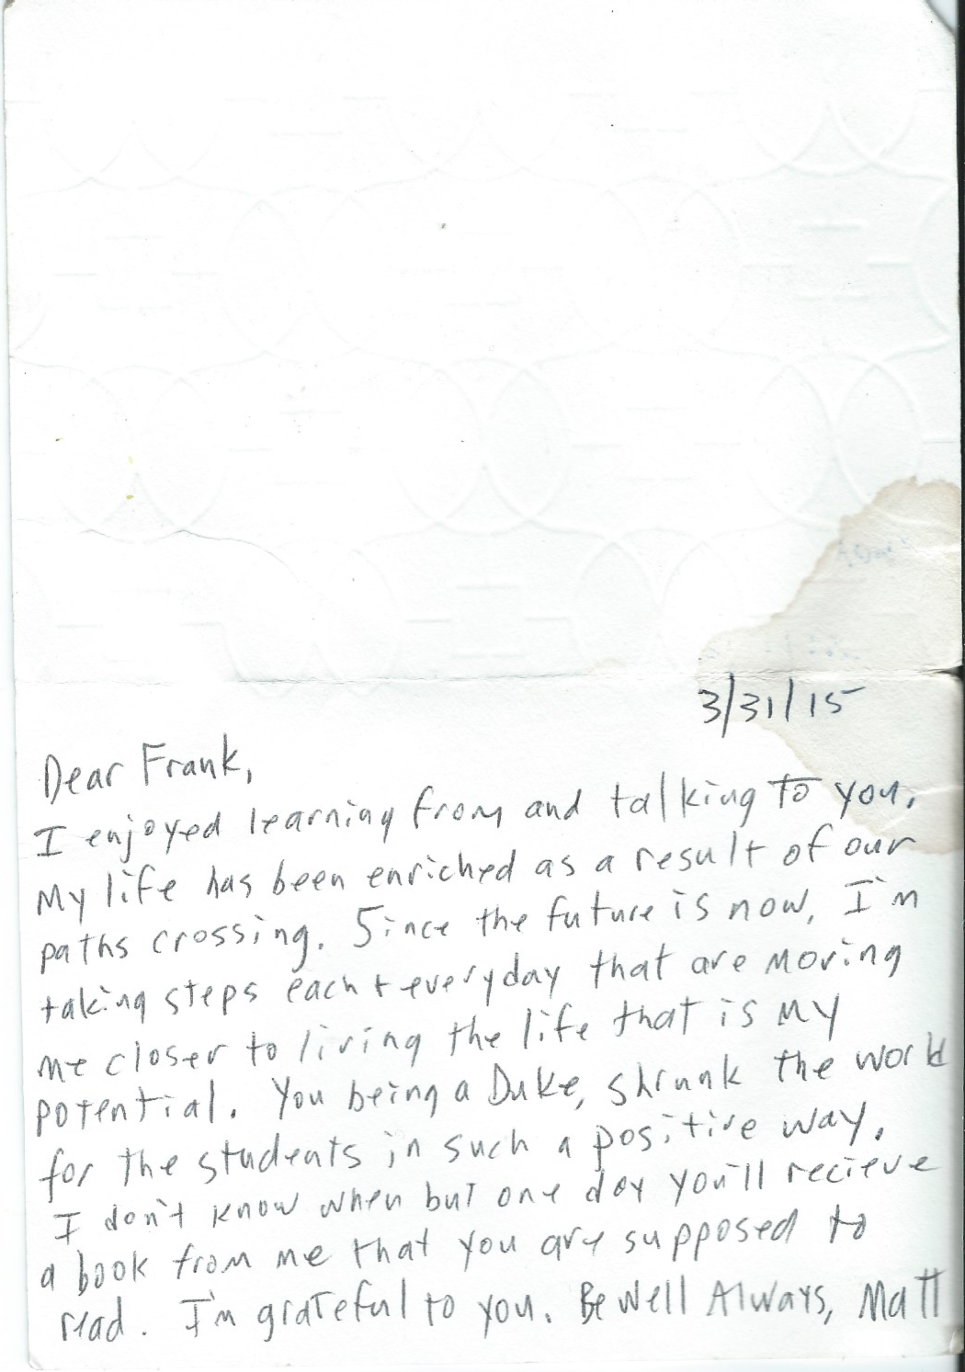 3/31/15
Dear Frank,
I enjoyed learning from and talking to you.
My life has been enriched as a result of our
paths crossing. Since the future is now, I'm
taking steps each + everyday that are moving
me closer to living the life that is my
potential. You being a Duke, shrunk the world
for the students in such a positive way.
I don't know when but one day you'll recieve
a book from me that you are supposed to
read. I'm grateful to you. Be Well Always, Matt